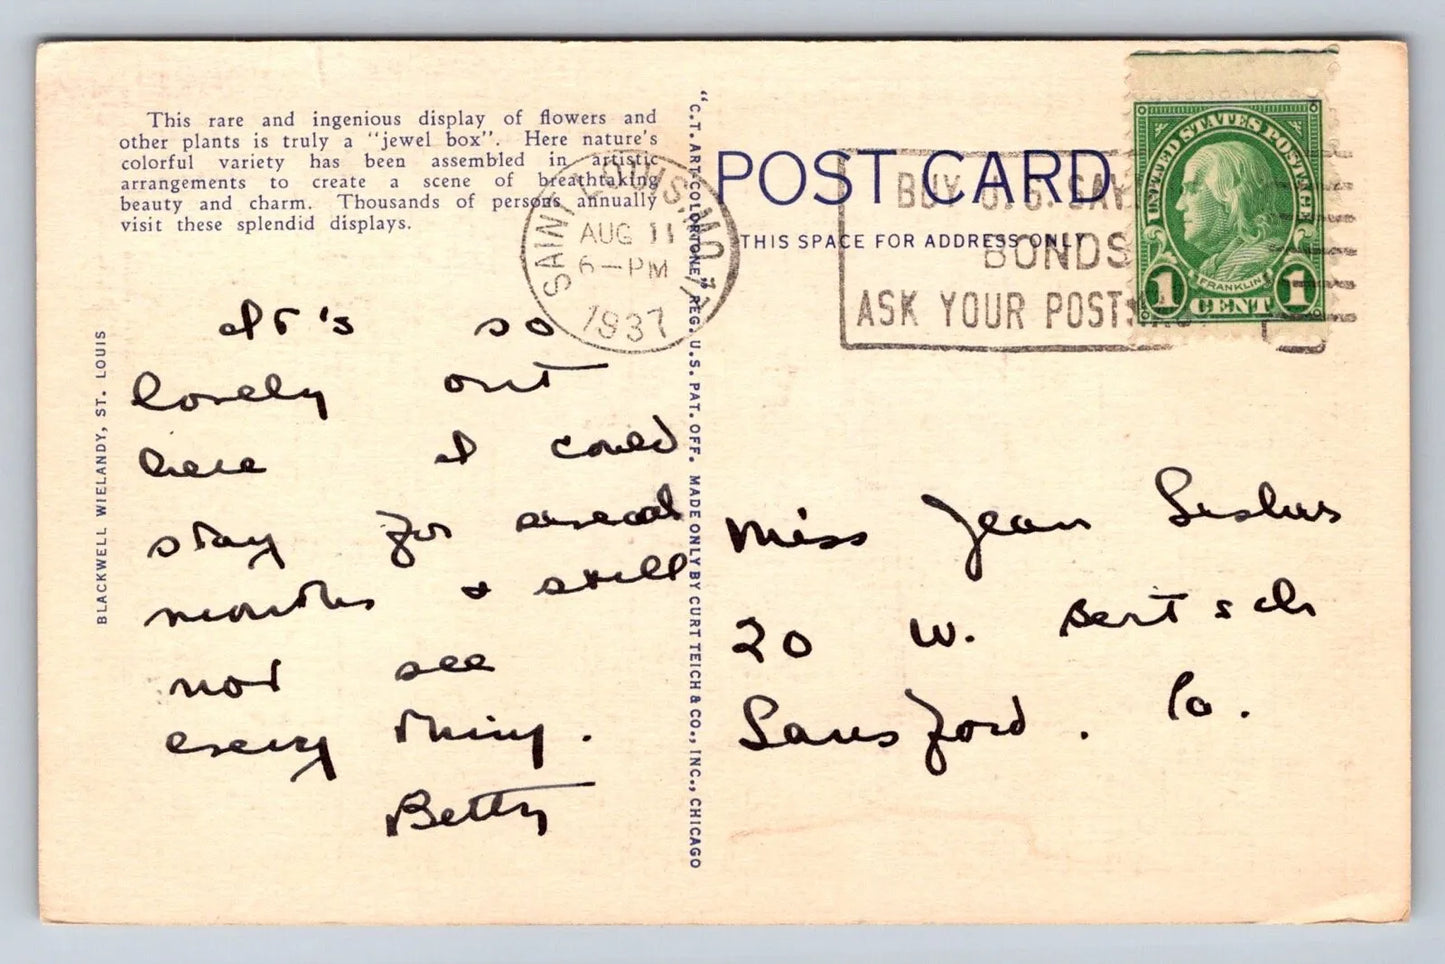 This rare and ingenious display of flowers and
other plants is truly a "jewel box". Here nature's
colorful variety has been assembled in artistic
arrangements to create a scene of breathtaking
beauty and charm. Thousands of persons annually
visit these splendid displays.
BLACKWELL WIELANDY, ST. LOUIS
It's so
lovely out
here I could
stay for several
months & still
not see
every thing.
Betty
"C.T. ART-COLORTONE," REG. U.S. PAT. OFF. MADE ONLY BY CURT TEICH & CO., INC., CHICAGO
SAINT LOUIS, MO.
AUG 11
6-PM
1937
POST CARD
THIS SPACE FOR ADDRESS ONLY
BUY U.S. SAV
BONDS
ASK YOUR POST
UNITED STATES POSTAGE
FRANKLIN
1 CENT 1
Miss Jean
20 W. Bertsch
Lansford. Pa.